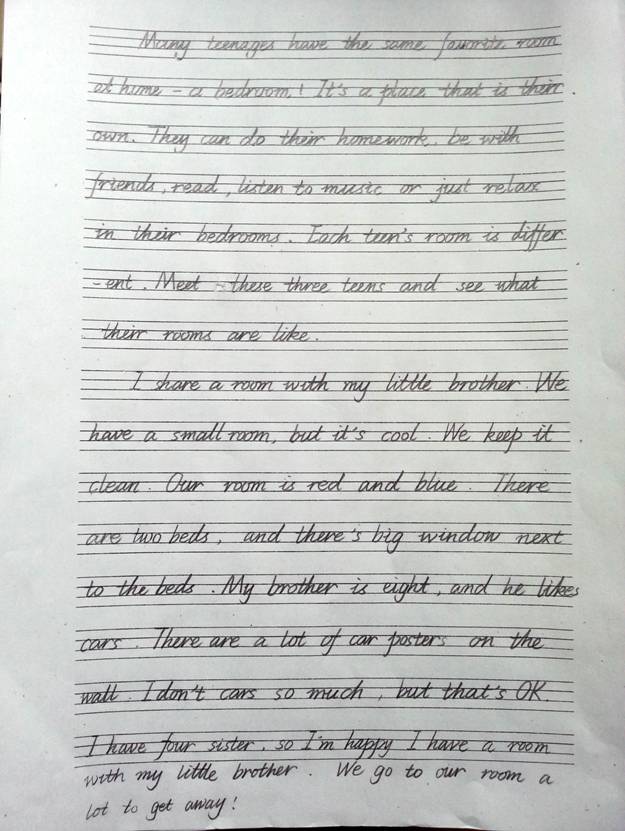 Many teenages have the same favorite room
at home - a bedroom! It's a place that is their
own. They can do their homework, be with
friends, read, listen to music or just relax
in their bedrooms. Each teen's room is differ
-ent. Meet these three teens and see what
their rooms are like.
I share a room with my little brother. We
have a small room, but it's cool. We keep it
clean. Our room is red and blue. There
are two beds, and there's big window next
to the beds. My brother is eight, and he likes
cars. There are a lot of car posters on the
wall. I don't cars so much, but that's OK.
I have four sister, so I'm happy I have a room
with my little brother. We go to our room a
lot to get away!